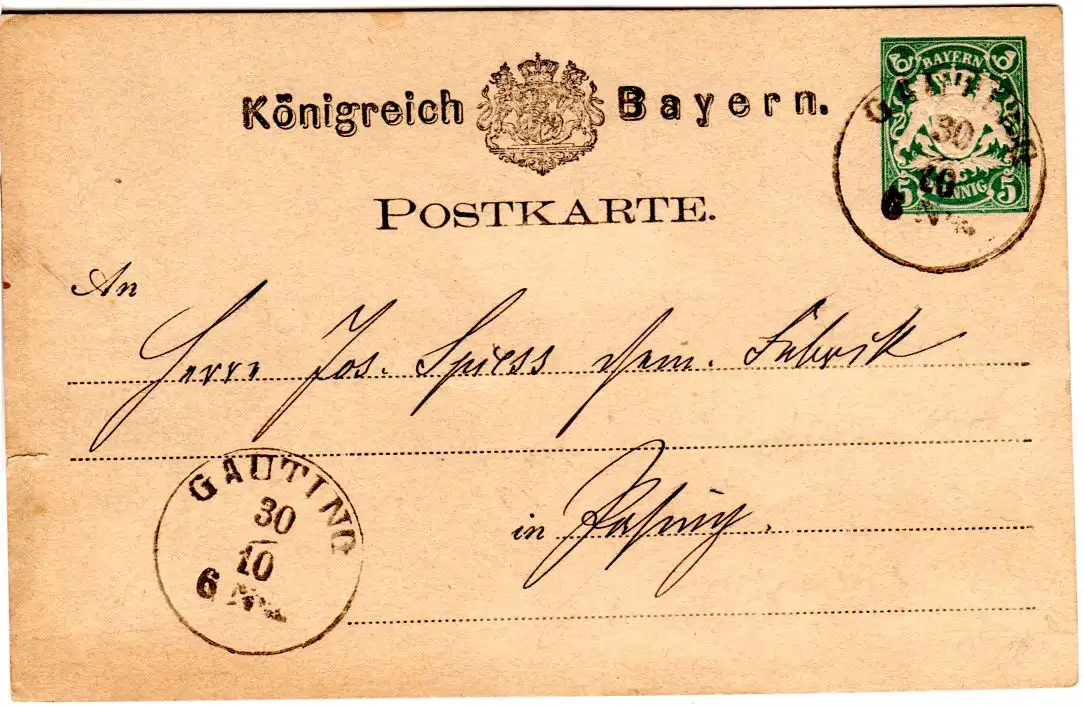 Königreich Bayern.
BAYERN
5 PFENNIG 5
GAUTING
30
10
6 Nm.
POSTKARTE.
An
Herrn Jos. Spiess chem. Fabrik
in Pasing.
GAUTING
30
10
6 Nm.